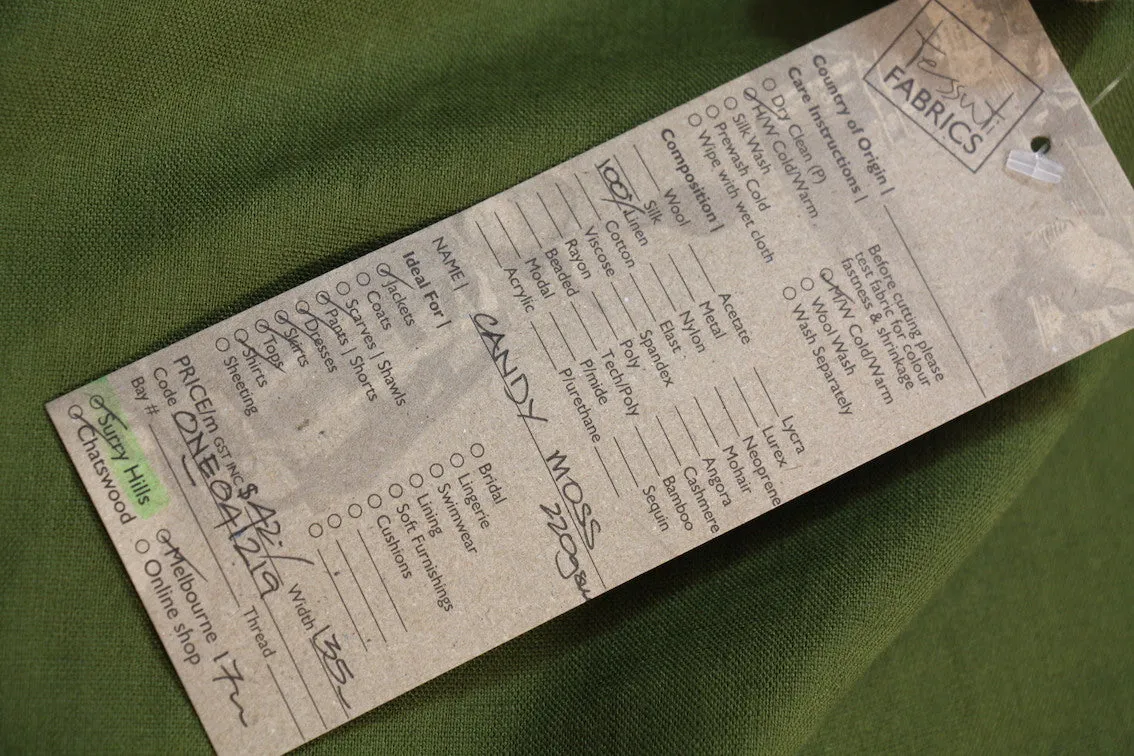 tessuti
FABRICS
Country of Origin |
Care Instructions |
Dry Clean (P)
H/W Cold/Warm
Silk Wash
Prewash Cold
Wipe with wet cloth
Before cutting please
test fabric for colour
fastness & shrinkage
M/W Cold/Warm
Wool Wash
Wash Separately
Composition |
Wool
Silk
100% Linen
Cotton
Viscose
Rayon
Beaded
Modal
Acrylic
Acetate
Metal
Nylon
Elast
Spandex
Poly
Tech/Poly
P/mide
P/urethane
Lycra
Lurex
Neoprene
Mohair
Angora
Cashmere
Bamboo
Sequin
NAME | CANDY MOSS
220gsm
Ideal For |
Jackets
Coats
Scarves | Shawls
Pants | Shorts
Dresses
Skirts
Tops
Shirts
Sheeting
Bridal
Lingerie
Swimwear
Lining
Soft Furnishings
Cushions
PRICE/m GST INC $42./ Width 135
Code ONE041219 Thread
Bay #
Surry Hills
Chatswood
Melbourne 17
Online shop